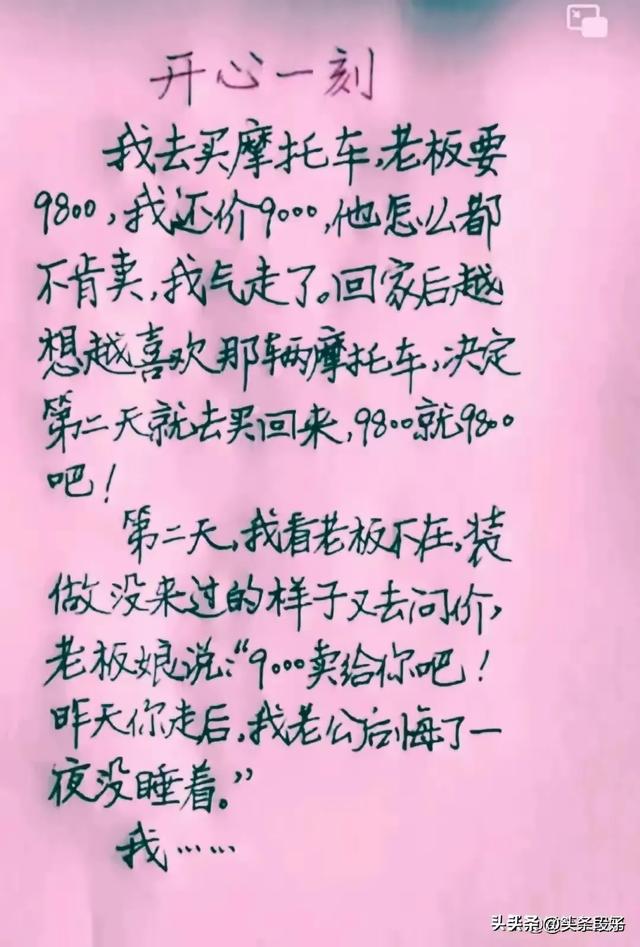 开心一刻
我去买摩托车,老板要
9800,我还价9000,他怎么都
不肯卖,我气走了。回家后越
想越喜欢那辆摩托车,决定
第二天就去买回来,9800就9800
吧!
第二天,我看老板不在,装
做没来过的样子又去问价,
老板娘说:“9000卖给你吧!
昨天你走后,我老公后悔了一
夜没睡着。”
我……
头条@笑条段子